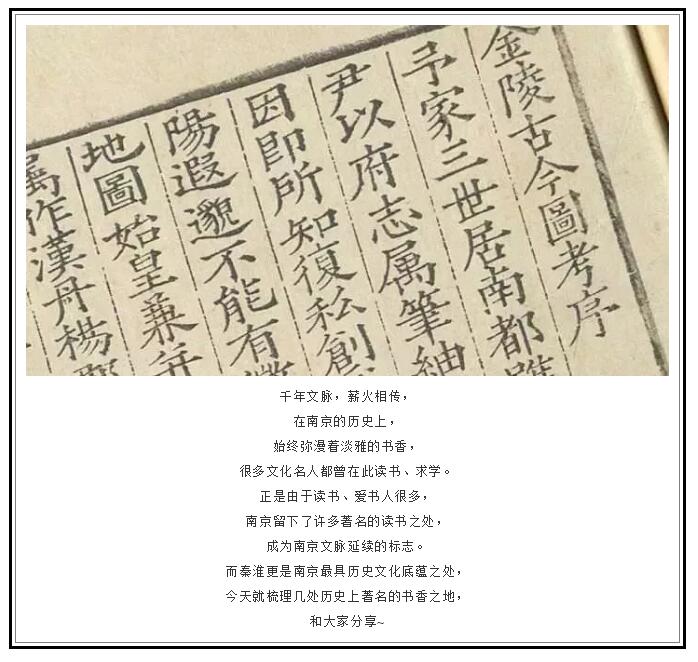 金陵古今圖考序
予家三世居南都
尹以府志属筆紬
因即所知復私創
陽遐邈不能有
地圖始皇兼并
作漢丹楊
千年文脉，薪火相传，
在南京的历史上，
始终弥漫着淡雅的书香，
很多文化名人都曾在此读书、求学。
正是由于读书、爱书人很多，
南京留下了许多著名的读书之处，
成为南京文脉延续的标志。
而秦淮更是南京最具历史文化底蕴之处，
今天就梳理几处历史上著名的书香之地，
和大家分享~